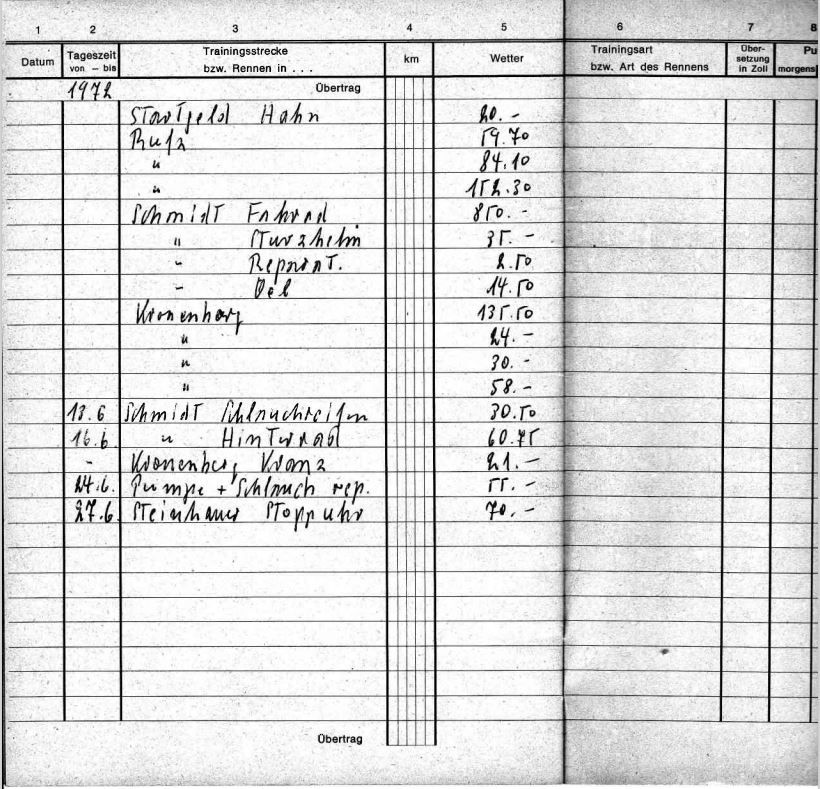 1 2 3 4 5 6 7 8
Datum Tageszeit von – bis Trainingsstrecke bzw. Rennen in . . . km Wetter Trainingsart bzw. Art des Rennens Über-setzung in Zoll Pu morgens
1972 Übertrag
Startgeld Hahn 20.-
Rufa 59.70
" 84.10
" 152.30
Schmidt Fahrrad 850.-
" Sturzhelm 35.-
" Reparat. 2.50
" Oel 14.50
Kronenberg 135.50
" 24.-
" 30.-
" 58.-
13.6 Schmidt Schlauchreifen 30.50
16.6. " Hinterrad 60.75
- Kronenberg Kranz 21.-
24.6. Pumpe + Schlauch rep. 55.-
27.6. Steinhauer Stoppuhr 70.-
Übertrag